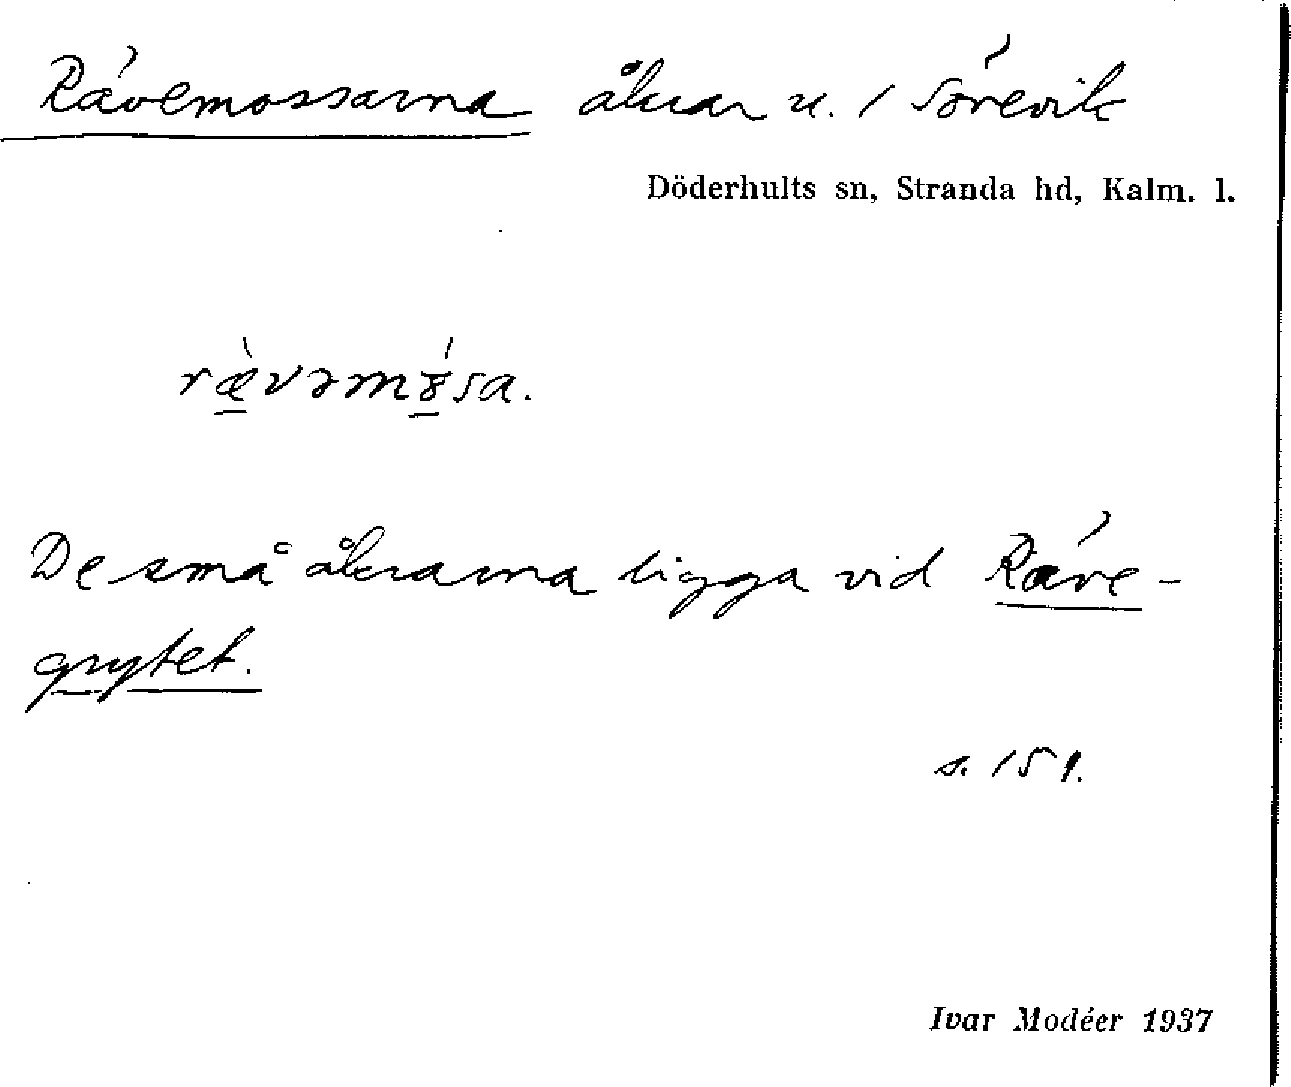 Rävemossarna åkrar u. / Sörevik
Döderhults sn, Stranda hd, Kalm. l.
ræ̀vəmɤ́sa.
De små åkrarna ligga vid Räve-
grytet.
s. 151.
Ivar Modéer 1937